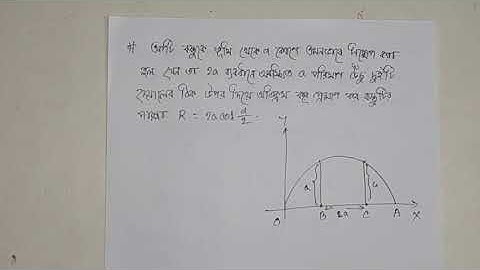 # একটি বস্তুকে ভূমি থেকে α কোণে এমনভাবে নিক্ষেপ করা
হল যেন তা 2a ব্যবধানে অবস্থিত a পরিমাণ উঁচু দুইটি
দেয়ালের ঠিক উপর দিয়ে অতিক্রম করে প্রমাণ কর বস্তুটির
পাল্লা R = 2a cot α/2 .
Y
a
a
O
B
2a
C
A
X